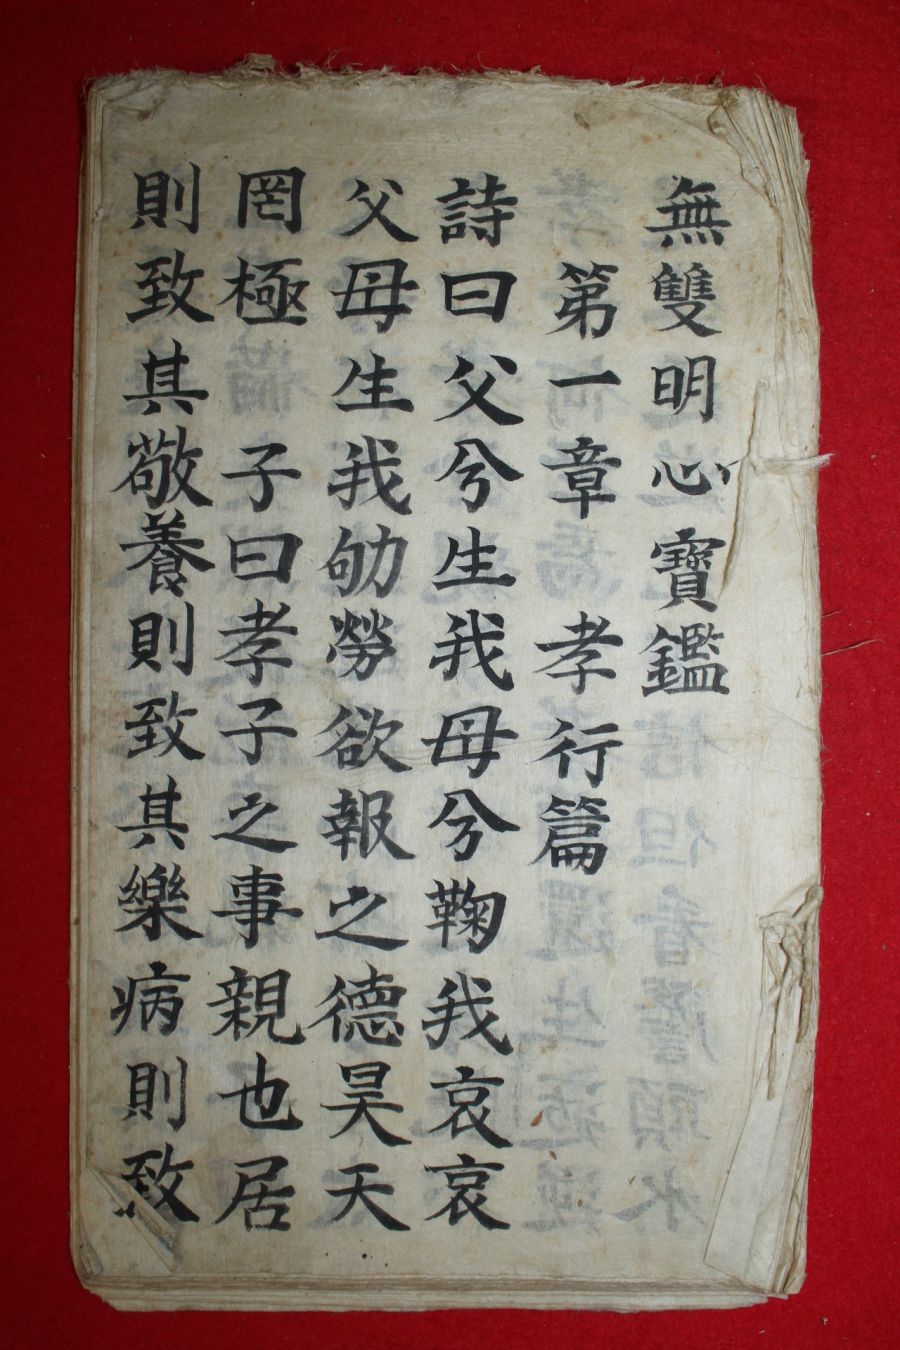 無雙明心寶鑑
第一章 孝行篇
詩曰父兮生我母兮鞠我哀哀
父母生我劬勞欲報之德昊天
罔極 子曰孝子之事親也居
則致其敬養則致其樂病則致